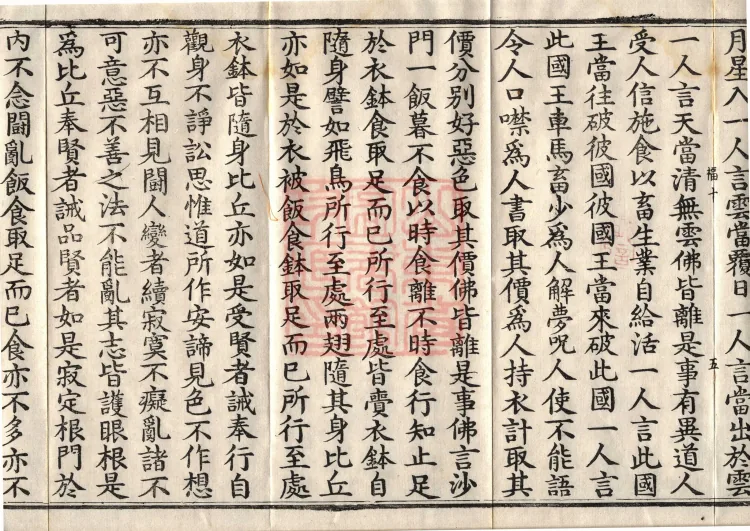 月星入一人言雲當覆日一人言當出於雲
一人言天當清無雲佛皆離是事有異道人
受人信施食以畜生業自給活一人言此國
王當往破彼國彼國王當來破此國一人言
此國王車馬畜少為人解夢呪人使不能語
令人口噤為人書取其價為人持衣計取其
價分別好惡色取其價佛皆離是事佛言沙
門一飯暮不食以時食離不時食行知止足
於衣鉢食取足而已所行至處皆賷衣鉢自
隨身譬如飛鳥所行至處兩翅隨其身比丘
亦如是於衣被飯食鉢取足而已所行至處
衣鉢皆隨身比丘亦如是受賢者誡奉行自
觀身不諍訟思惟道所作安諦見色不作想
亦不互相見鬪人變者續寂寞不癡亂諸不
可意惡不善之法不能亂其志皆護眼根是
為比丘奉賢者誡品賢者如是寂定根門於
內不念鬪亂飯食取足而已食亦不多亦不
福十
五